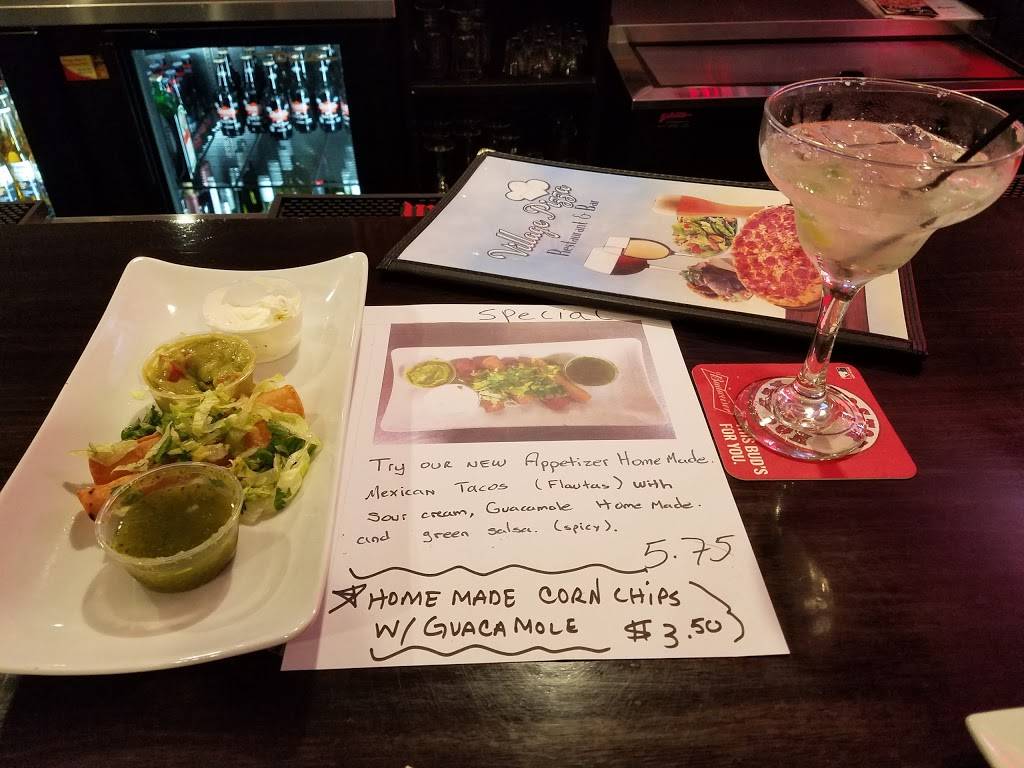 Village Pizza
Restaurant & Bar
Special
Try our new Appetizer Home Made.
Mexican Tacos (Flautas) with
Sour cream, Guacamole Home Made.
and green salsa. (spicy).
5.75
HOME MADE CORN CHIPS
W/ GUACAMOLE $3.50
Budweiser
THIS BUD'S
FOR YOU.